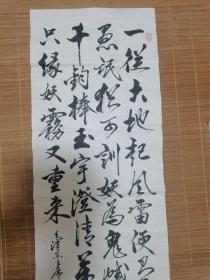 一從大地起風雷便有
愚氓猶可訓妖為鬼蜮
千鈞棒玉宇澄清萬
只緣妖霧又重来